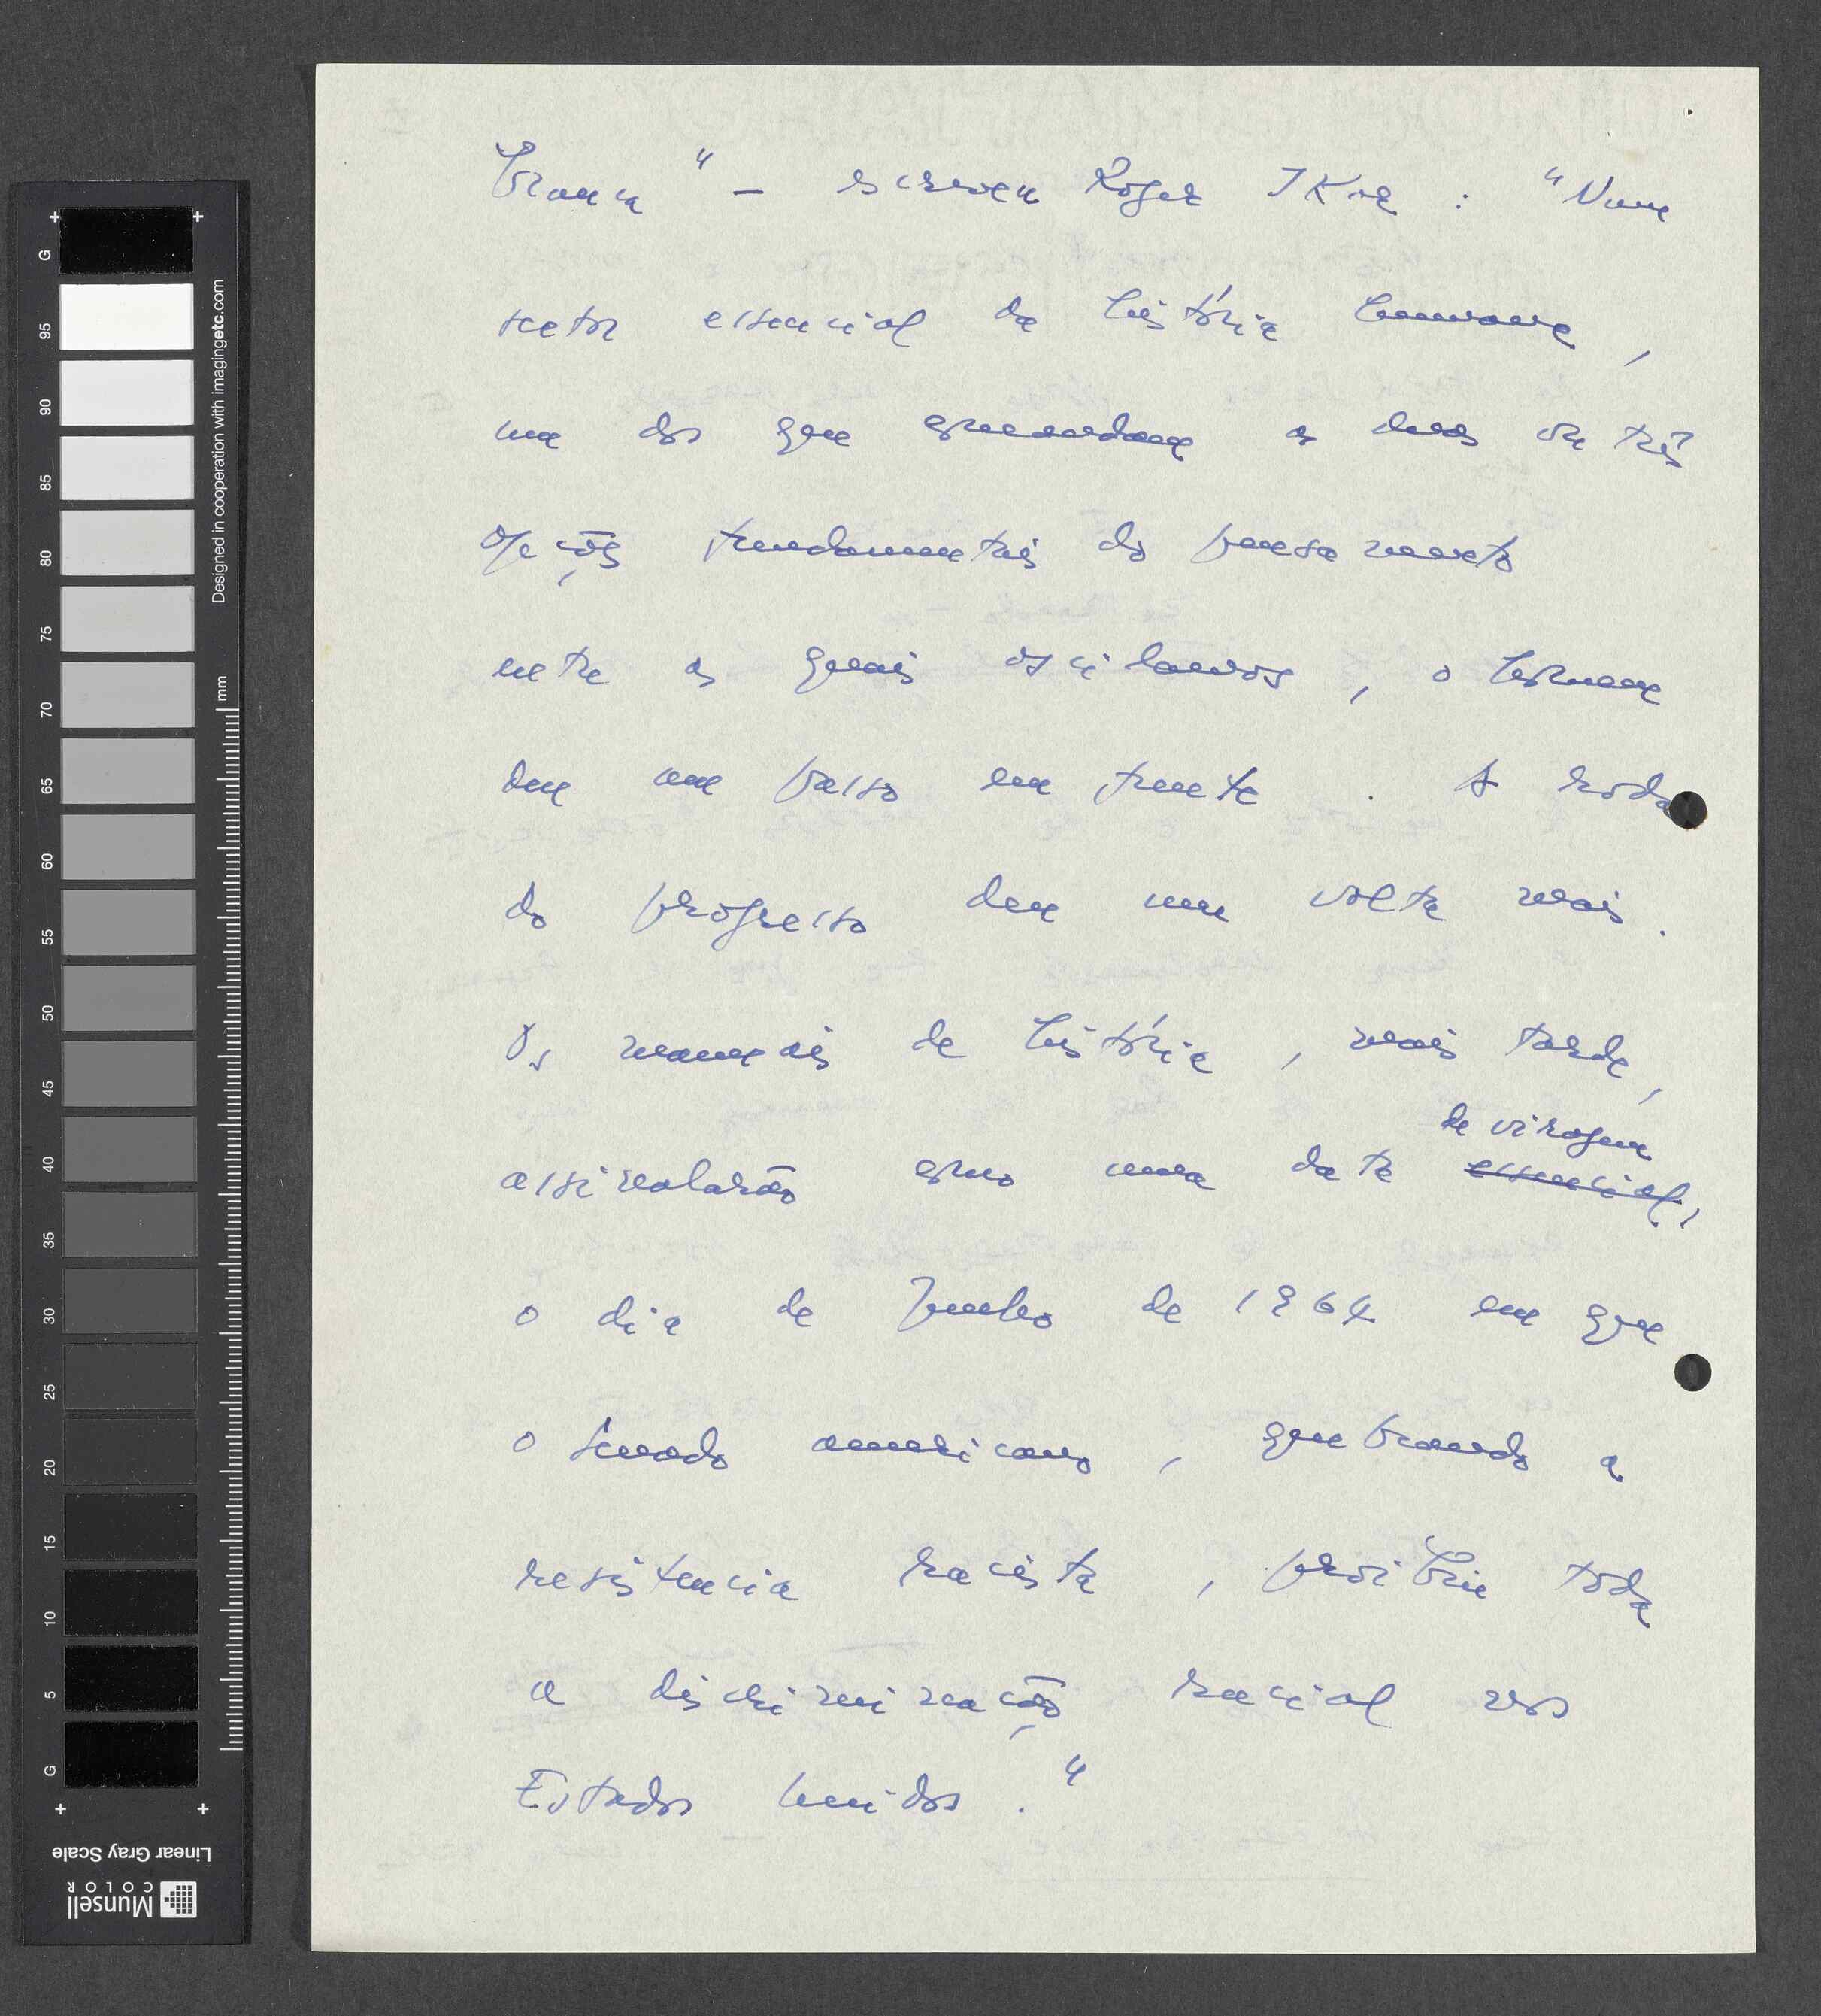 branca" – escreveu Roger IKor : "Num
sector essencial da história humana,
um dos que comandam as duas ou três
opções fundamentais do pensamento
entre as quais oscilamos, o homem
deu um passo em frente. A roda
do progresso deu uma volta mais.
Os manuais de história, mais tarde,
de viragem
assinalarão como uma data essencial,
o dia de Junho de 1964 em que
o Senado americano, quebrando a
resistencia racista, proibiu toda
a discriminação racial nos
Estados Unidos."
G
95
90
85
80
75
70
65
60
55
50
45
40
35
30
25
20
15
10
5
G
Designed in cooperation with imagingetc.com
mm
Linear Gray Scale
Munsell
COLOR